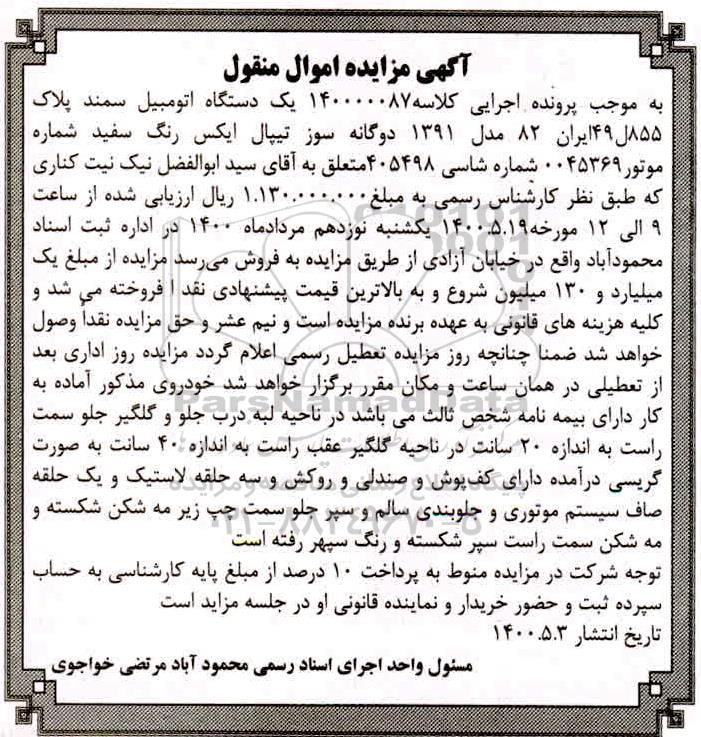 آگهی مزایده اموال منقول
به موجب پرونده اجرایی کلاسه۱۴۰۰۰۰۰۸۷ یک دستگاه اتومبیل سمند پلاک
۸۵۵ل۴۹ایران ۸۲ مدل ۱۳۹۱ دوگانه سوز تیپال ایکس رنگ سفید شماره
موتور۰۰۴۵۳۶۹ شماره شاسی ۴۰۵۴۹۸متعلق به آقای سید ابوالفضل نیک نیت کناری
که طبق نظر کارشناس رسمی به مبلغ۱.۱۳۰.۰۰۰.۰۰۰ ریال ارزیابی شده از ساعت
۹ الی ۱۲ مورخه۱۴۰۰.۵.۱۹ یکشنبه نوزدهم مردادماه ۱۴۰۰ در اداره ثبت اسناد
محمودآباد واقع در خیابان آزادی از طریق مزایده به فروش می‌رسد مزایده از مبلغ یک
میلیارد و ۱۳۰ میلیون شروع و به بالاترین قیمت پیشنهادی نقد ا فروخته می شد و
کلیه هزینه های قانونی به عهده برنده مزایده است و نیم عشر و حق مزایده نقداً وصول
خواهد شد ضمنا چنانچه روز مزایده تعطیل رسمی اعلام گردد مزایده روز اداری بعد
از تعطیلی در همان ساعت و مکان مقرر برگزار خواهد شد خودروی مذکور آماده به
کار دارای بیمه نامه شخص ثالث می باشد در ناحیه لبه درب جلو و گلگیر جلو سمت
راست به اندازه ۲۰ سانت در ناحیه گلگیر عقب راست به اندازه ۴۰ سانت به صورت
گریسی درآمده دارای کف‌پوش و صندلی و روکش و سه حلقه لاستیک و یک حلقه
صاف سیستم موتوری و جلوبندی سالم و سپر جلو سمت چپ زیر مه شکن شکسته و
مه شکن سمت راست سپر شکسته و رنگ سپهر رفته است
توجه شرکت در مزایده منوط به پرداخت ۱۰ درصد از مبلغ پایه کارشناسی به حساب
سپرده ثبت و حضور خریدار و نماینده قانونی او در جلسه مزاید است
تاریخ انتشار ۱۴۰۰.۵.۳
مسئول واحد اجرای اسناد رسمی محمود آباد مرتضی خواجوی
ParsNamadData
۰۲۱-۸۸۳۴۹۶۷۰-۵